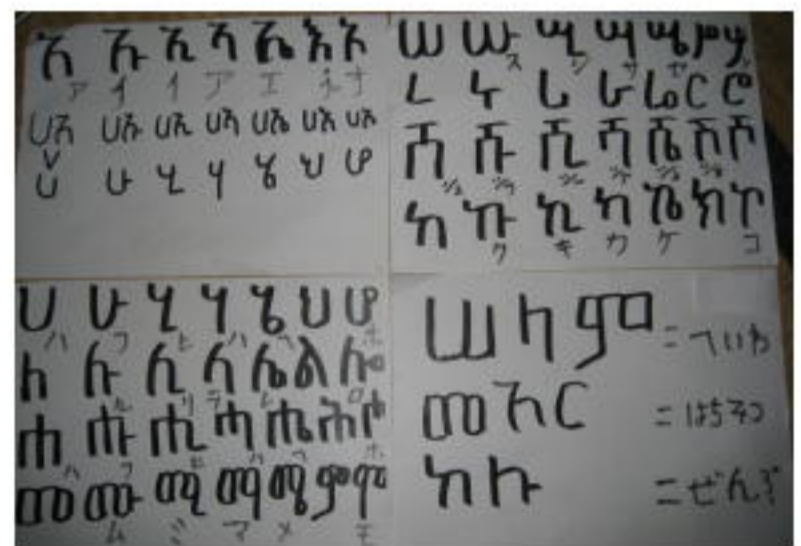 አ ኡ ኢ ኣ ኤ እ ኦ
ア イ イ ア エ オ
ሀአ ሀኡ ሀኢ ሀኣ ሀኤ ሀእ ሀኦ
ሀ ሁ ሂ ሃ ሄ ህ ሆ
ሠ ሡ ሢ ሣ ሤ ሥ ሦ
ス シ サ セ
ረ ሩ ሪ ራ ሬ ር ሮ
ሸ ሹ ሺ ሻ ሼ ሽ ሾ
ከ ኩ ኪ ካ ኬ ክ ኮ
ク キ カ ケ コ
ሀ ሁ ሂ ሃ ሄ ህ ሆ
ハ フ ヒ ハ ヘ ホ
ለ ሉ ሊ ላ ሌ ል ሎ
ル リ ラ レ ロ
ሐ ሑ ሒ ሓ ሔ ሕ ሖ
ハ フ ヒ ハ ヘ ホ
መ ሙ ሚ ማ ሜ ም ሞ
ム ミ マ メ モ
ሠላም = へいわ
መኣር = はちみつ
ከሉ = ぜんぶ